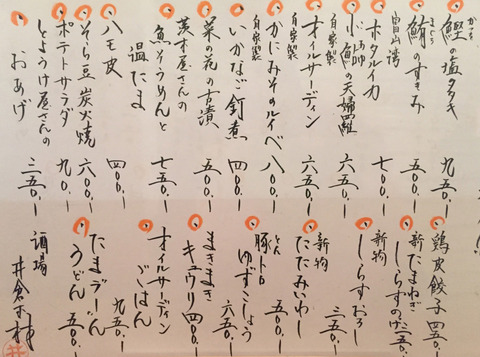 鰹の塩タタキ 九五〇.-
鮪のすきみ
富山湾
ホタルイカ 七〇〇.-
小鮎の天婦羅 六五〇.-
自家製
オイルサーディン 六五〇.-
自家製
かにみそのルイベ 八〇〇.-
いかなご釘煮 四〇〇.-
菜の花の古漬 五〇〇.-
茨木屋さんの
魚そうめんと 七五〇.-
温たま
ハモ皮 四〇〇.-
そら豆炭火焼 六〇〇.-
ポテトサラダ
とようけ屋さんの
おあげ 三五〇.-
鶏皮餃子 四五〇.-
新たまねぎ
しらすのっけ 三五〇.-
新物
しらすおろし 三五〇.-
新物
たたみいわし 五〇〇.-
豚トロ
ゆずこしょう 六五〇.-
まきまき
キュウリ 四〇〇.-
オイルサーディン
ごはん 九五〇.-
うどん 五〇〇.-
酒場 井倉木材